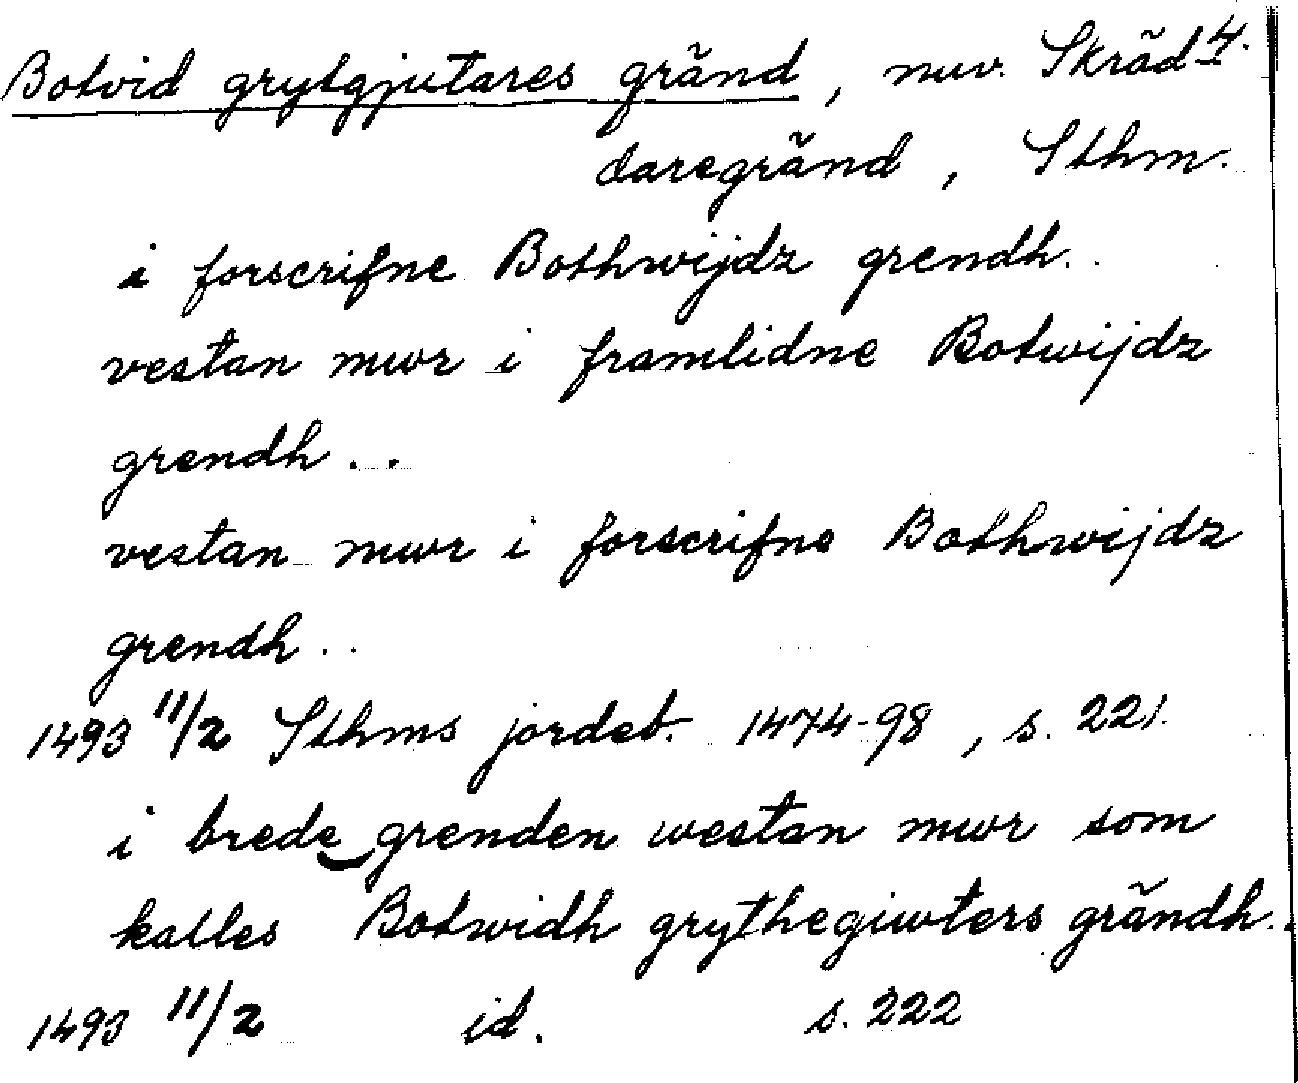 Botvid grytgjutares gränd, nuv. Skräd- 4.
daregränd, Sthm.
i forscrifne Bothwijdz grendh..
vestan mwr i framlidne Botwijdz
grendh..
vestan mwr i forscrifne Bothwijdz
grendh..
1493 11/2 Sthms jordeb. 1474-98, s. 221.
i brede grenden westan mwr som
kalles Botwidh grythegiwters grändh..
1493 11/2 id. s. 222